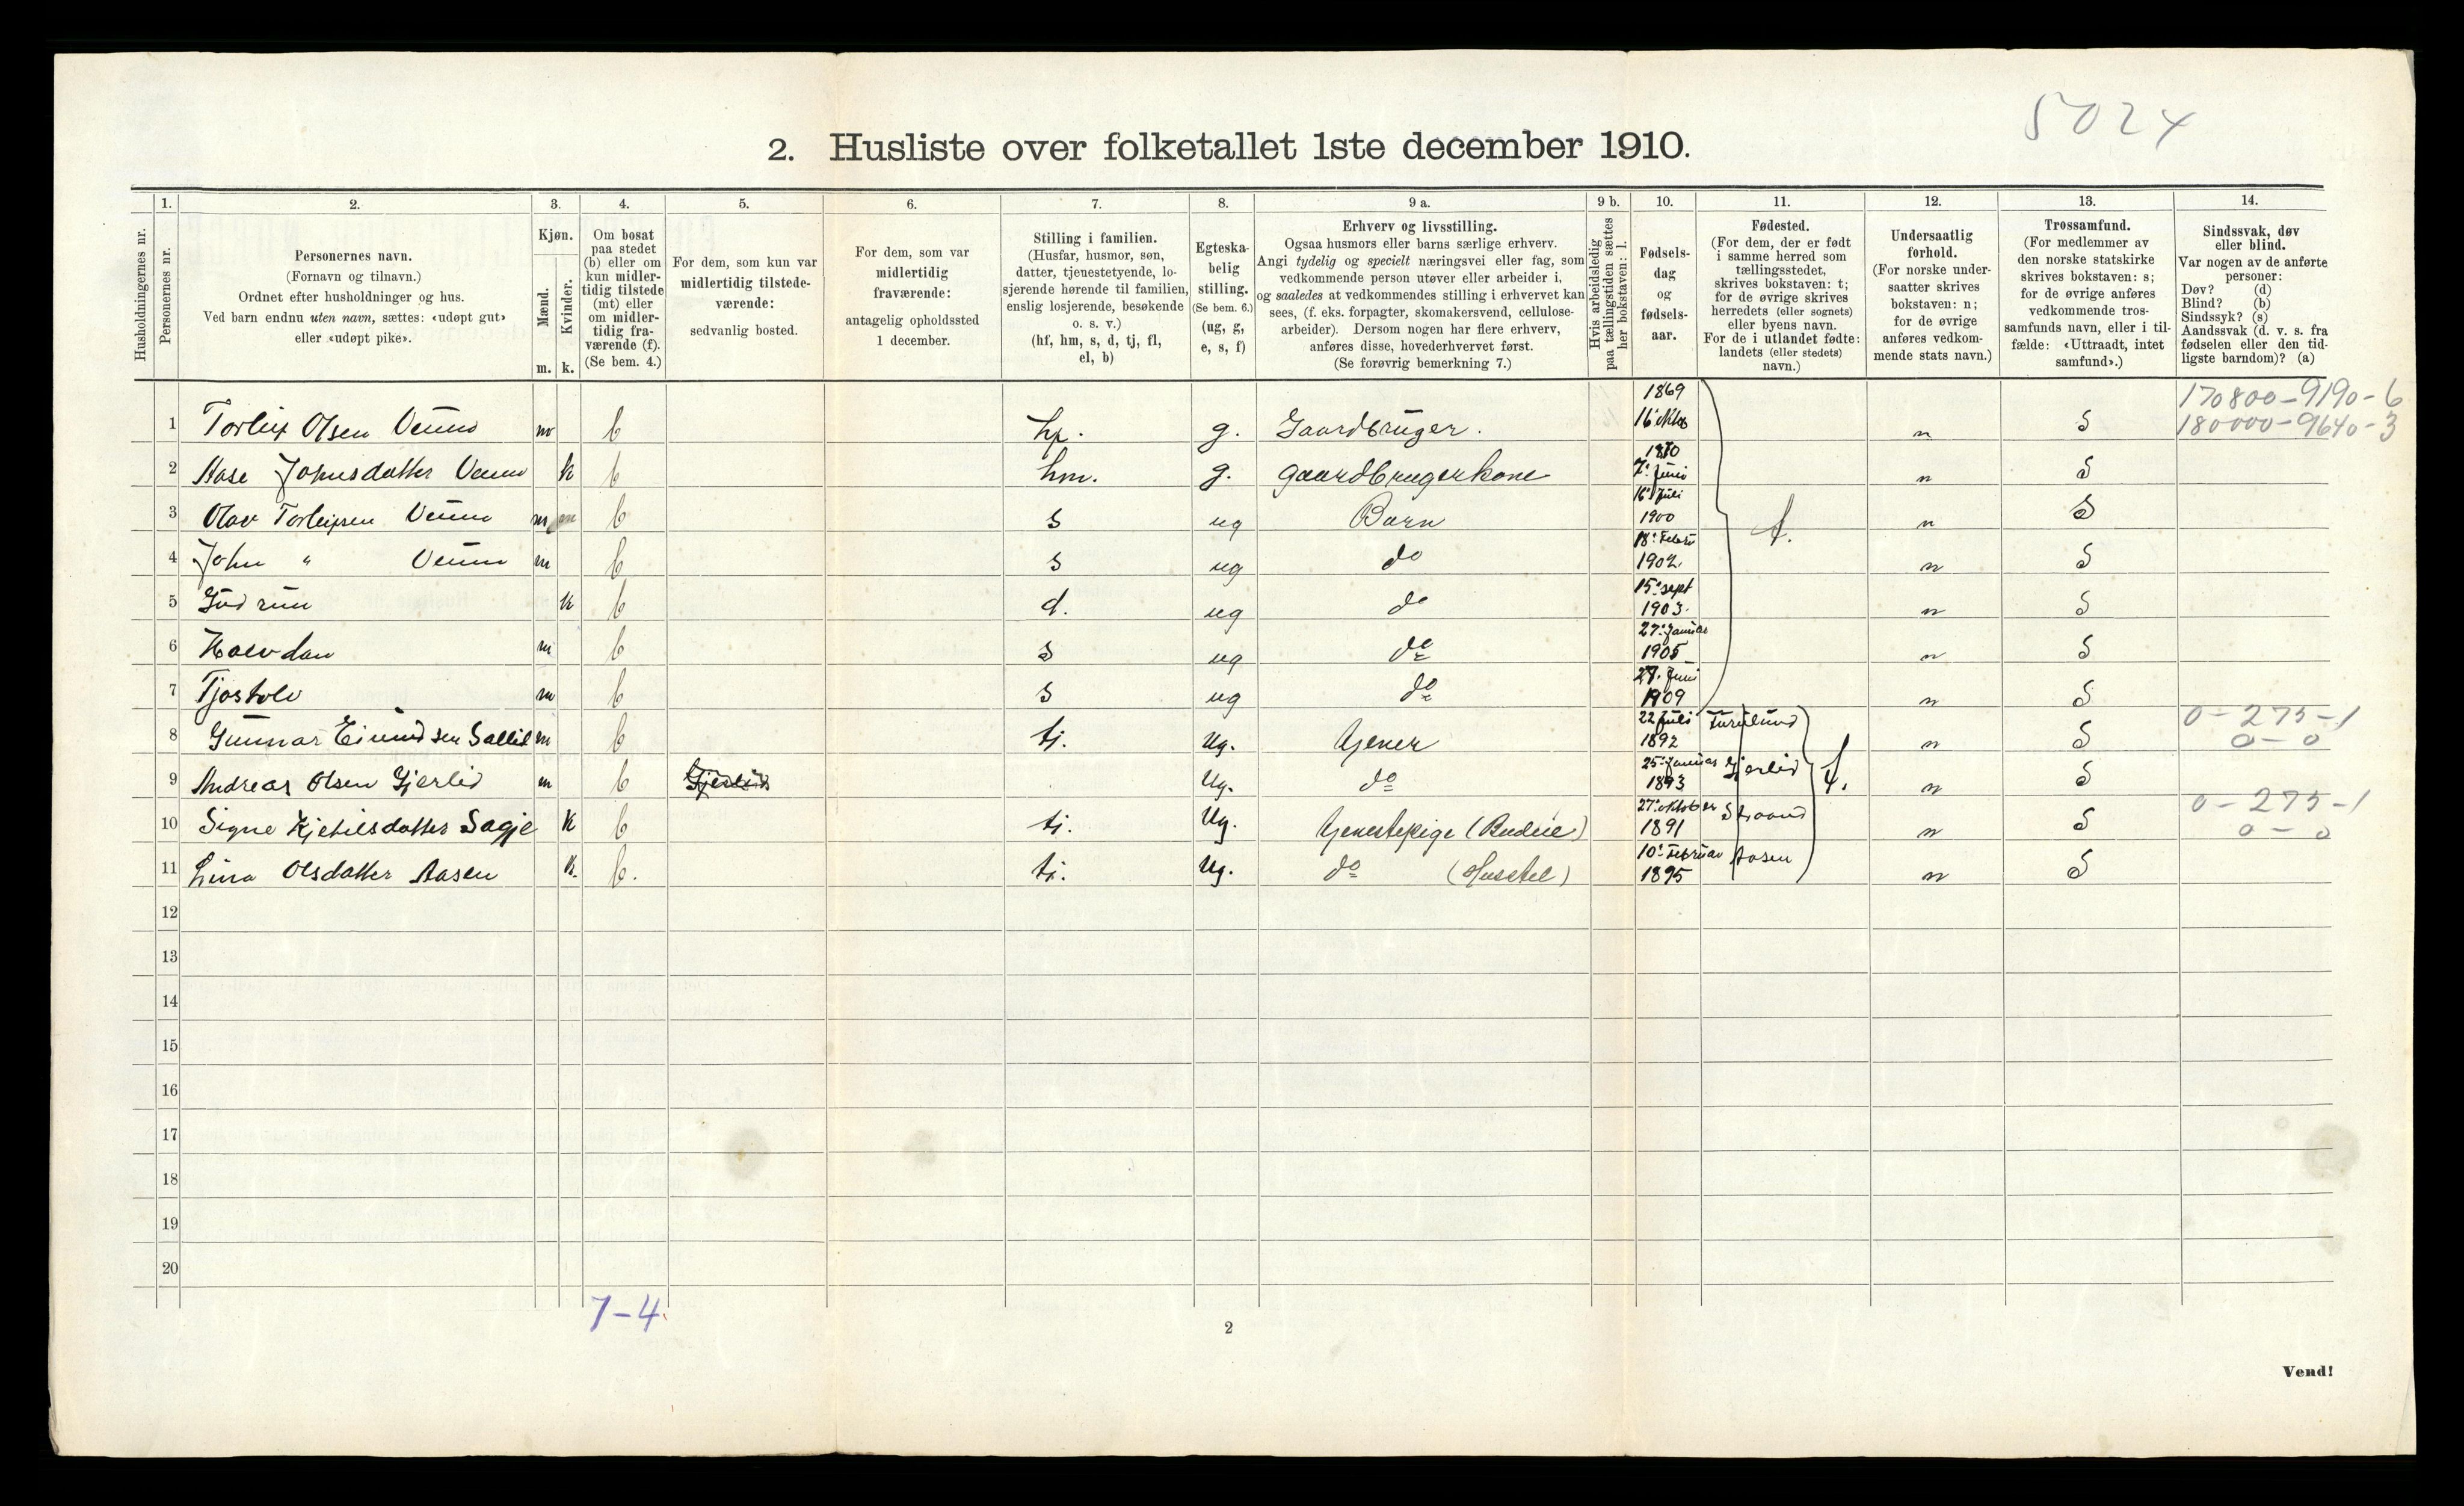 5024
2. Husliste over folketallet 1ste december 1910.
Husholdningernes nr.
1.
Personernes nr.
2.
Personernes navn.
(Fornavn og tilnavn.)
Ordnet efter husholdninger og hus.
Ved barn endnu uten navn, sættes: «udøpt gut»
eller «udøpt pike».
3.
Kjøn.
Mænd.
Kvinder.
m. k.
4.
Om bosat
paa stedet
(b) eller om
kun midler-
tidig tilstede
(mt) eller
om midler-
tidig fra-
værende (f).
(Se bem. 4.)
5.
For dem, som kun var
midlertidig tilstede-
værende:
sedvanlig bosted.
6.
For dem, som var
midlertidig
fraværende:
antagelig opholdssted
1 december.
7.
Stilling i familien.
(Husfar, husmor, søn,
datter, tjenestetyende, lo-
sjerende hørende til familien,
enslig losjerende, besøkende
o. s. v.)
(hf, hm, s, d, tj, fl,
el, b)
8.
Egteska-
belig
stilling.
(Se bem. 6.)
(ug, g,
e, s, f)
9 a.
Erhverv og livsstilling.
Ogsaa husmors eller barns særlige erhverv.
Angi tydelig og specielt næringsvei eller fag, som
vedkommende person utøver eller arbeider i,
og saaledes at vedkommendes stilling i erhvervet kan
sees, (f. eks. forpagter, skomakersvend, cellulose-
arbeider). Dersom nogen har flere erhverv,
anføres disse, hovederhvervet først.
(Se forøvrig bemerkning 7.)
9 b.
Hvis arbeidsledig
paa tællingstiden sættes
her bokstaven: l.
10.
Fødsels-
dag
og
fødsels-
aar.
11.
Fødested.
(For dem, der er født
i samme herred som
tællingsstedet,
skrives bokstaven: t;
for de øvrige skrives
herredets (eller sognets)
eller byens navn.
For de i utlandet fødte:
landets (eller stedets)
navn.)
12.
Undersaatlig
forhold.
(For norske under-
saatter skrives
bokstaven: n;
for de øvrige
anføres vedkom-
mende stats navn.)
13.
Trossamfund.
(For medlemmer av
den norske statskirke
skrives bokstaven: s;
for de øvrige anføres
vedkommende tros-
samfunds navn, eller i til-
fælde: «Uttraadt, intet
samfund».)
14.
Sindssvak, døv
eller blind.
Var nogen av de anførte
personer:
Døv? (d)
Blind? (b)
Sindssyk? (s)
Aandssvak (d. v. s. fra
fødselen eller den tid-
ligste barndom)? (a)
1 Torleif Olsen Veum m b hf. g. Gaardbruger. 1869 16 oktob n S 170800-9190-6
180000-9640-3
2 Aase Johnsdatter Veum k b hm. g. gaardbrugerkone 1870 7. Juni n S
3 Olav Torleifsen Veum m b s ug Barn 16 Juli 1900 t. n S
4 John " Veum m b s ug do 18. Febru 1902 n S
5 Gudrun k b d. ug do 15. sept 1903. n S
6 Halvdan m b s ug do 27. Januar 1905 n S
7 Tjostolv m b s ug do 27. Juni 1909 n S
8 Gunnar Eivindsen m b tj. Ug. tjener 22 Juli 1892 n S 0-275-1
0-0
9 Andreas Olsen Gjerlid m b Gjerlid Ug. do 25. Januar 1893 Gjerlid t. n S
10 Signe Kjetilsdatter Sagje K b tj. Ug. tjenestepige (Budeie) 27. oktober 1891 Straand n S 0-275-1
0-0
11 Lina Olsdatter Aasen K. b. tj. Ug. do (Husstel) 10. Februar 1895 Aasen n S
12
13
14
15
16
17
18
19
20
7-4.
2
Vend!